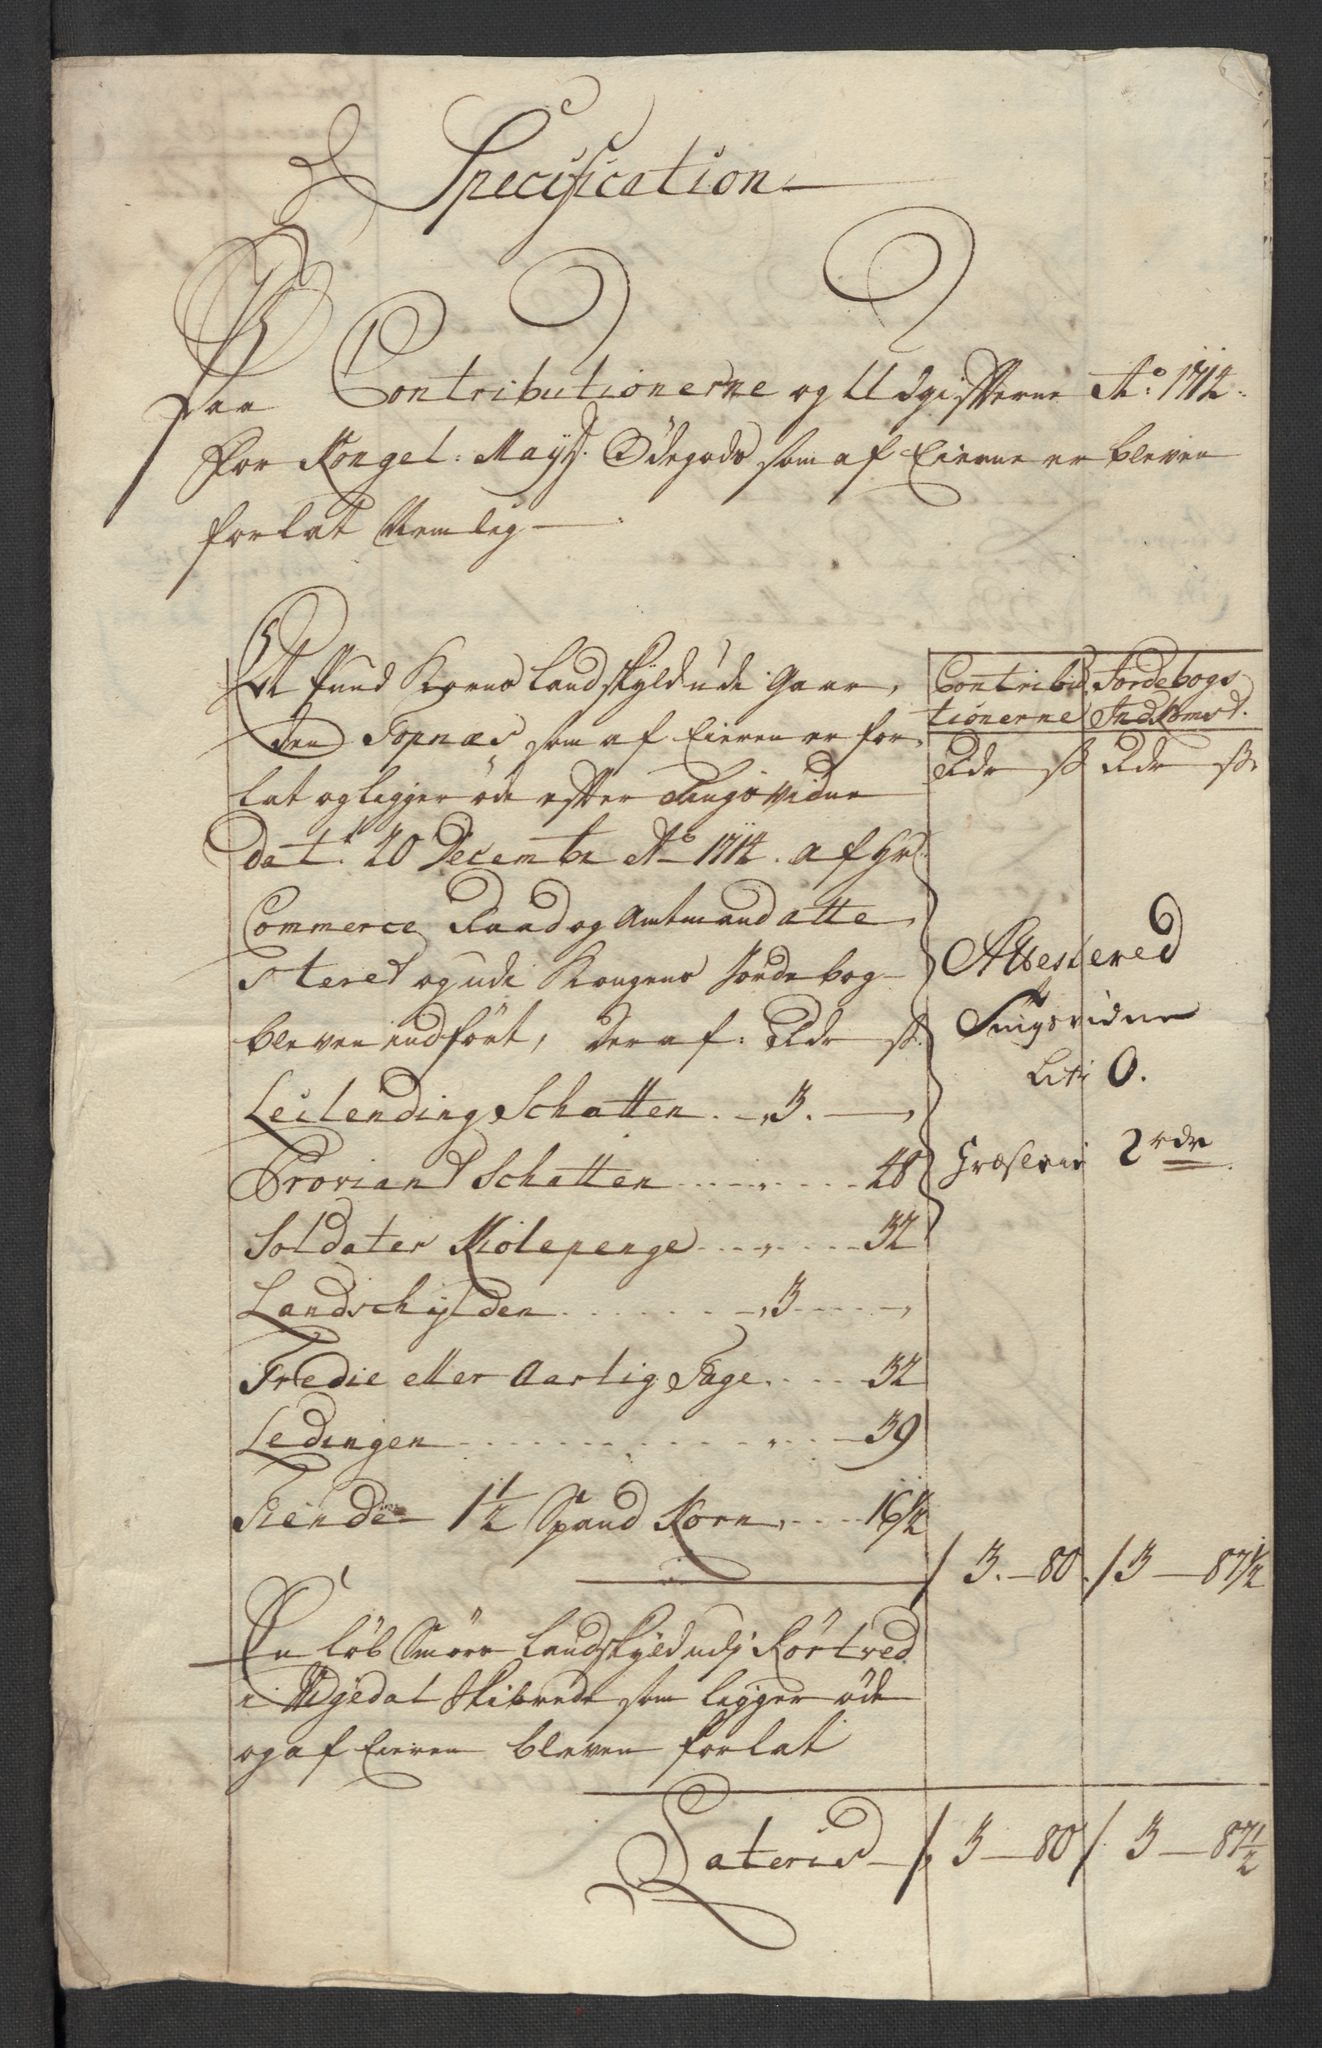 Specification
Paa Contributionerne og Udgiffterne Ao: 1714.
for Kongel: Mayst. Ödegods som af Eierne er bleven
forlat Nemlig
Et Pund Korns Landskyld udi Gaar,
den Topnæs som af Eieren er for,
lat og ligger öde effter Tingsvidne
dat: 20 Decembr Ao 1714. af Hr
Commerce Raad og Amtmand atte,
steret og udi Kongens Jordebog
bleven indfört, deraf: Rdr ß.
Contribu Jordebogs
tionerne Indkomst.
Rdr ß Rdr ß.
Leilending Schatten . 3. —
Proviant Schatten . . . . 48
Soldater Kiolepenge . . . . 32
Landschylden . . . . 3 . . . .
Tredie eller Aarlig Tage . . . . 32
Ledingen . . . . 39
Tiende 1½ Spand Korn . . . . 16½
Attestered
Tingsvidne
Litr O.
Græsleie 2 rdr
/ 3. — 80. / 3 — 87½
En löb Smörs Landskyld udj Rörtved
i Ujedal Skibrede som ligger öde
og af Eieren bleven forlat
Lateris / 3 — 80 / 3 — 87½